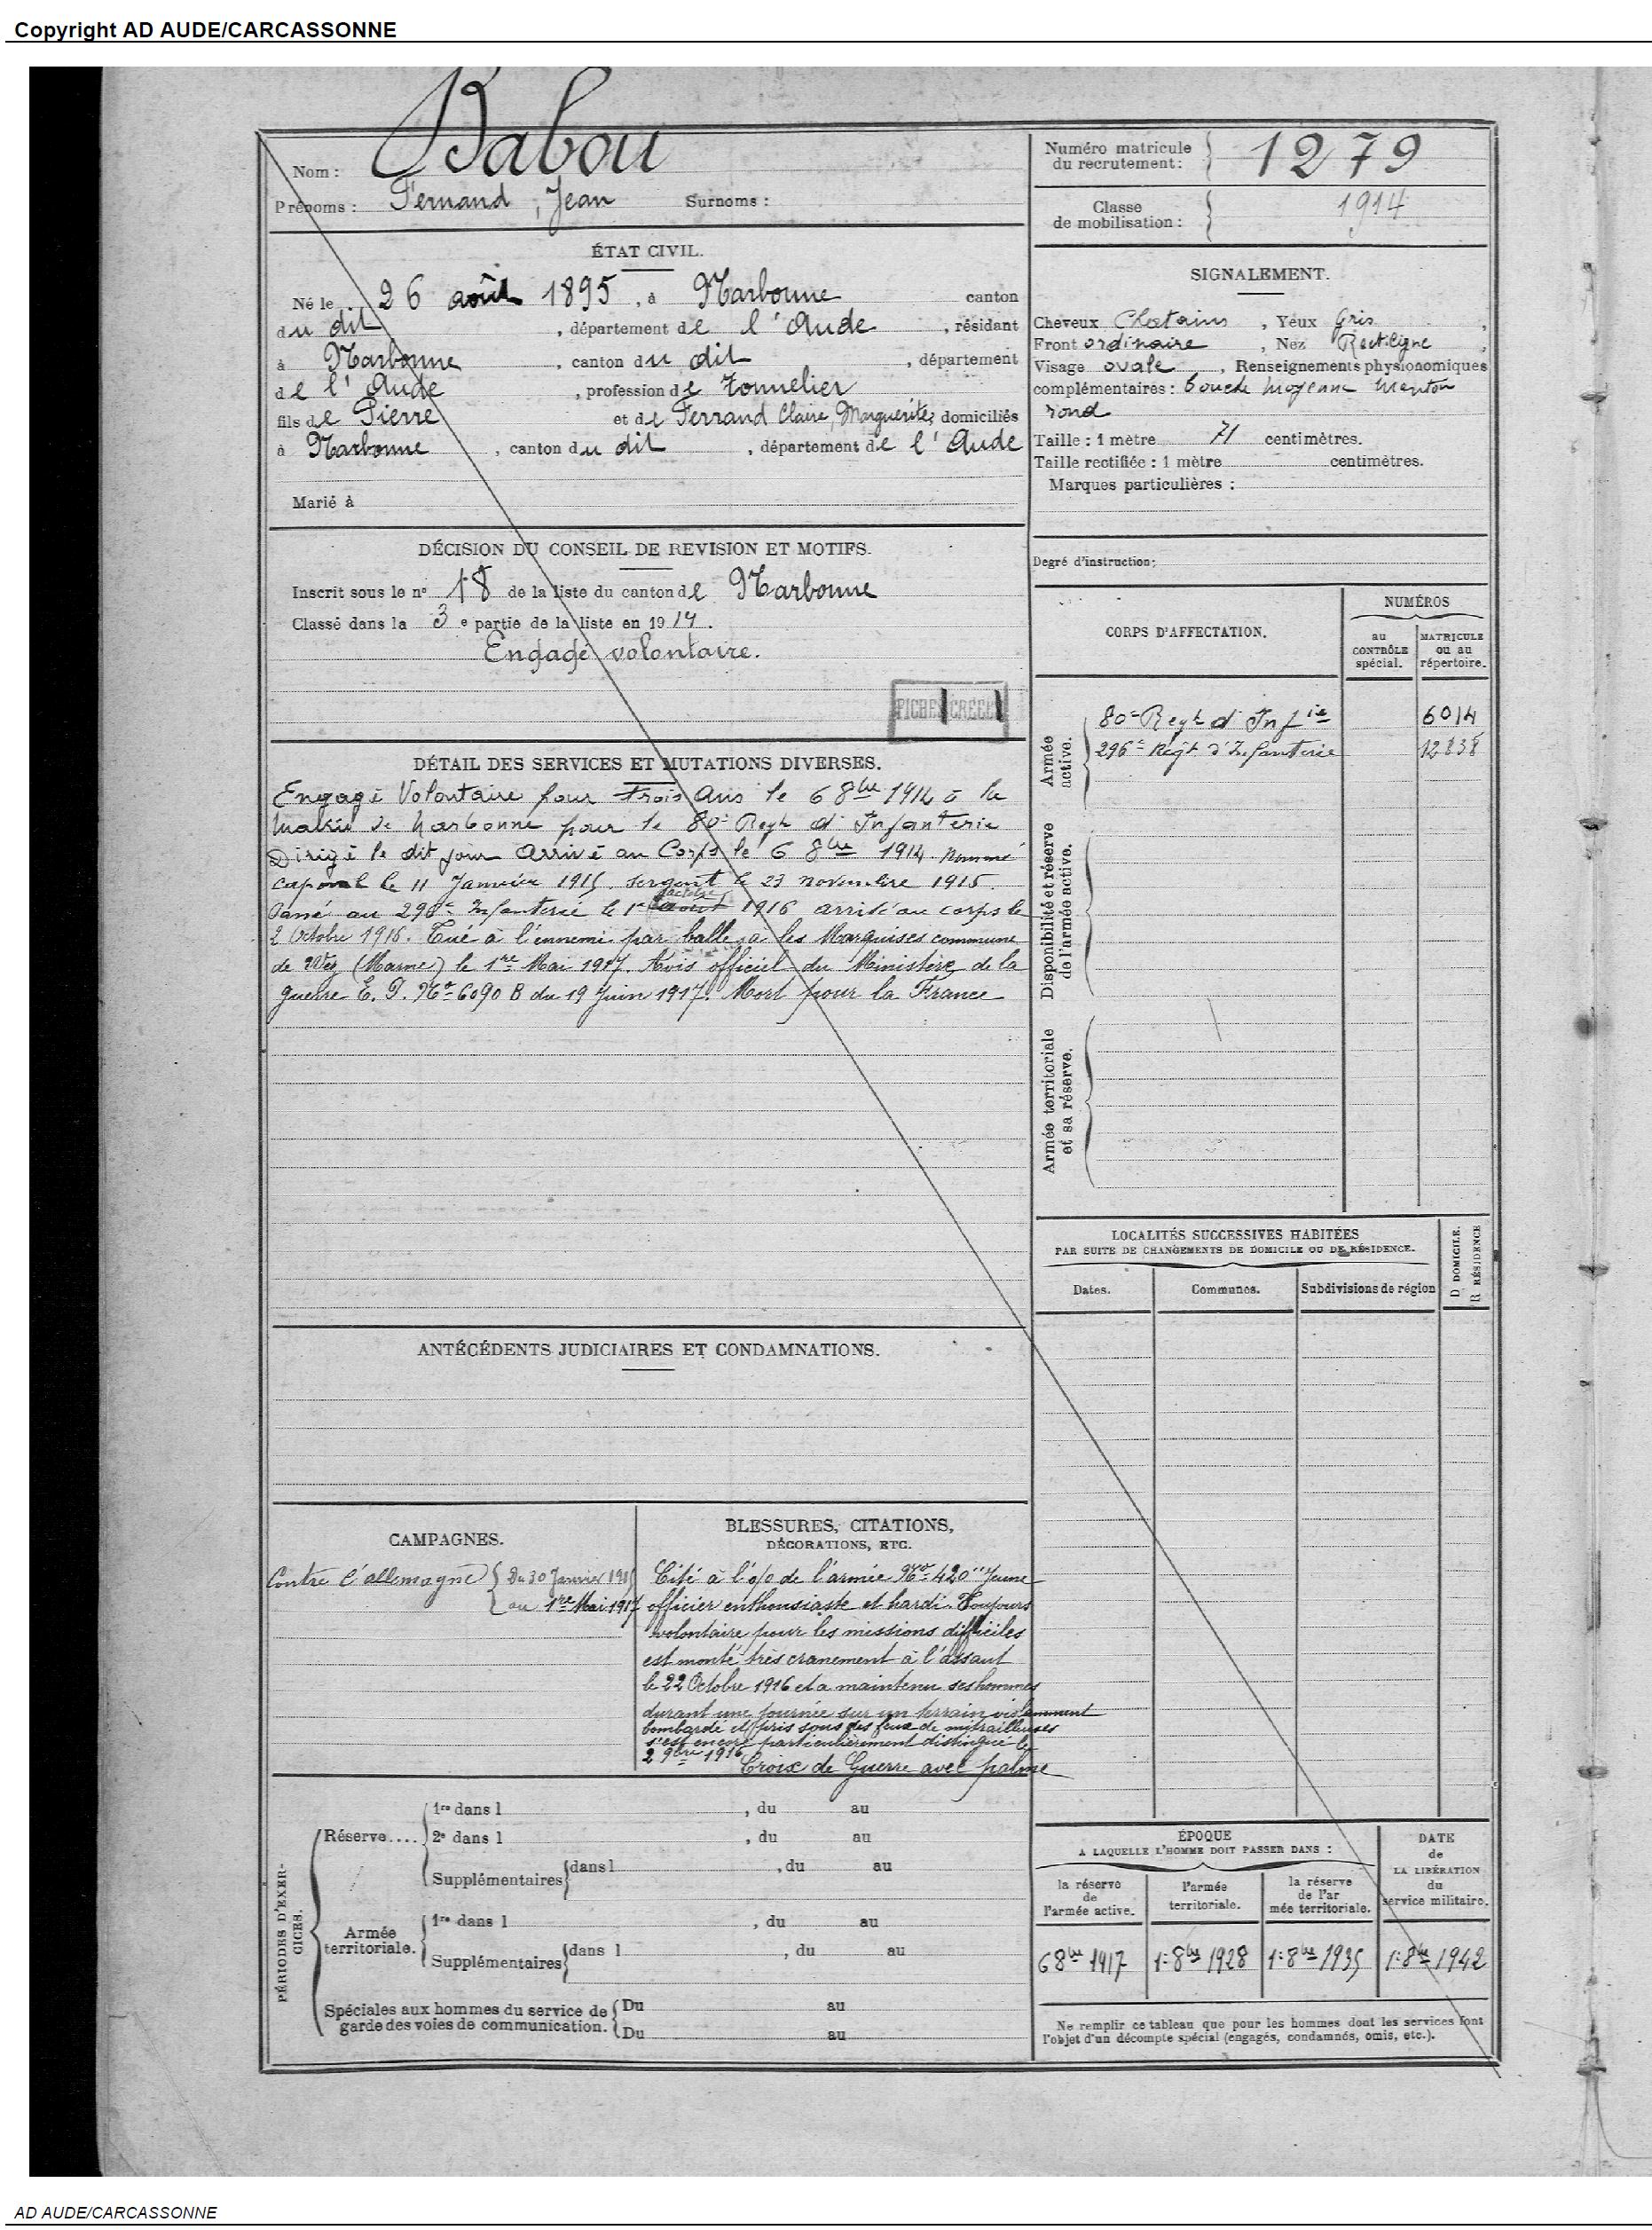 Copyright AD AUDE/CARCASSONNE
Nom : Babou
Prénoms : Fernand, Jean Surnoms :
Numéro matricule
du recrutement : 1279
Classe
de mobilisation : 1914
ÉTAT CIVIL.
Né le 26 août 1895, à Narbonne canton
du dit, département de l'Aude, résidant
à Narbonne, canton du dit, département
de l'Aude, profession de Tonnelier
fils de Pierre et de Ferrand Claire, Marguerite, domiciliés
à Narbonne, canton du dit, département de l'Aude
Marié à
SIGNALEMENT.
Cheveux Chatains, Yeux Gris,
Front ordinaire, Nez Rectiligne,
Visage ovale, Renseignements physionomiques
complémentaires : bouche moyenne menton
rond
Taille : 1 mètre 71 centimètres.
Taille rectifiée : 1 mètre centimètres.
Marques particulières :
DÉCISION DU CONSEIL DE REVISION ET MOTIFS.
Inscrit sous le n° 18 de la liste du canton de Narbonne
Classé dans la 3e partie de la liste en 1914.
Engagé volontaire.
FICHE CRÉÉE
Degré d'instruction :
CORPS D'AFFECTATION.
NUMÉROS
au
CONTRÔLE
spécial.
MATRICULE
ou au
répertoire.
Armée
active.
80e Regt d'Inftie 6014
296e Régt d'Infanterie 12838
Disponibilité et réserve
de l'armée active.
Armée territoriale
et sa réserve.
DÉTAIL DES SERVICES ET MUTATIONS DIVERSES.
Engagé Volontaire pour trois ans le 6 8bre 1914 à la
Mairie de Narbonne pour le 80e Regt d'Infanterie
Dirigé le dit jour arrivé au Corps le 6 8bre 1914. Nommé
caporal le 11 Janvier 1915. sergent le 23 novembre 1915.
octobre
Passé au 296e Infanterie le 1er août 1916 arrivé au corps le
2 Octobre 1916. Tué à l'ennemi par balle à les Marquises commune
de (Marne) le 1re Mai 1917. Avis officiel du Ministère de la
guerre E. P. No 6090 B du 19 Juin 1917. Mort pour la France
LOCALITÉS SUCCESSIVES HABITÉES
PAR SUITE DE CHANGEMENTS DE DOMICILE OU DE RÉSIDENCE.
Dates.
Communes.
Subdivisions de région
D DOMICILE.
R RÉSIDENCE
ANTÉCÉDENTS JUDICIAIRES ET CONDAMNATIONS.
CAMPAGNES.
Contre l'allemagne { Du 30 Janvier 1915
au 1re Mai 1917
BLESSURES, CITATIONS,
DÉCORATIONS, ETC.
Cité à l'o/o de l'armée No 420 "Jeune
officier enthousiaste et hardi. Toujours
volontaire pour les missions difficiles
est monté très cranement à l'assaut
le 22 Octobre 1916 et a maintenu ses hommes
durant une journée sur un terrain violemment
bombardé et pris sous des feux de mitrailleuses
s'est encore particulièrement distingué le
2 9bre 1916
Croix de Guerre avec palme
PÉRIODES D'EXER-
CICES.
Réserve....
1re dans l , du au
2e dans l , du au
Supplémentaires dans l , du au
Armée
territoriale.
1re dans l , du au
Supplémentaires dans l , du au
Spéciales aux hommes du service de
garde des voies de communication.
Du au
Du au
ÉPOQUE
A LAQUELLE L'HOMME DOIT PASSER DANS :
la réserve
de
l'armée active.
l'armée
territoriale.
la réserve
de l'ar
mée territoriale.
DATE
de
LA LIBÉRATION
du
service militaire.
6 8bre 1917 1er 8bre 1928 1er 8bre 1935 1er 8bre 1942
Ne remplir ce tableau que pour les hommes dont les services font
l'objet d'un décompte spécial (engagés, condamnés, omis, etc.).
AD AUDE/CARCASSONNE